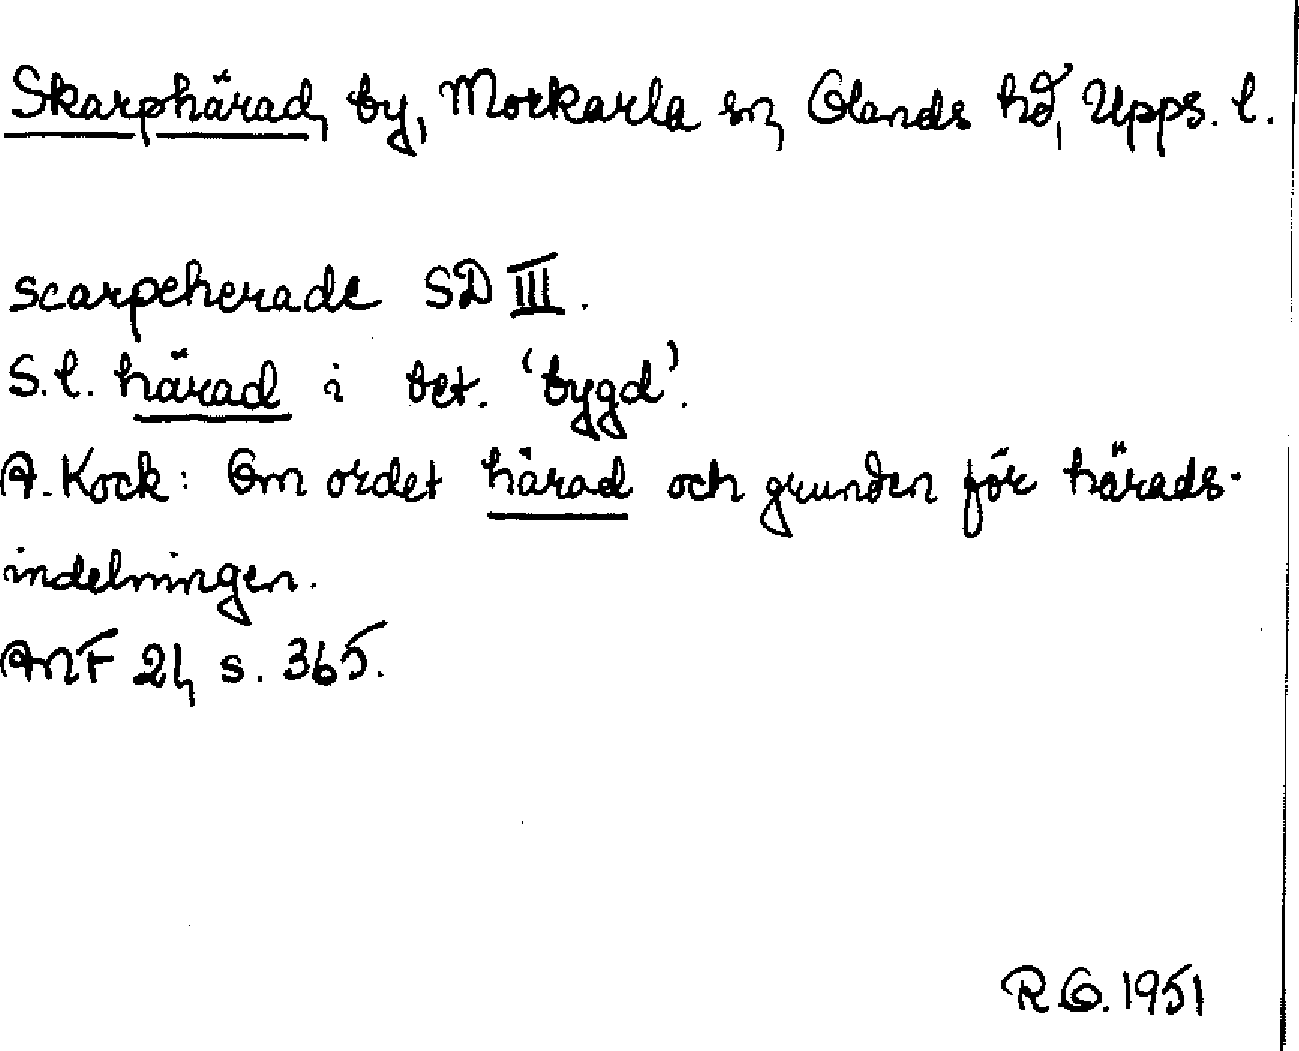 Skarphärad, by, Morkarla sn, Olands hd, Upps. l.
scarpeherade SD III.
S.l. härad i bet. 'bygd'.
A. Kock: Om ordet härad och grunden för härads-
indelningen.
ANF 21, s. 365.
R G. 1951